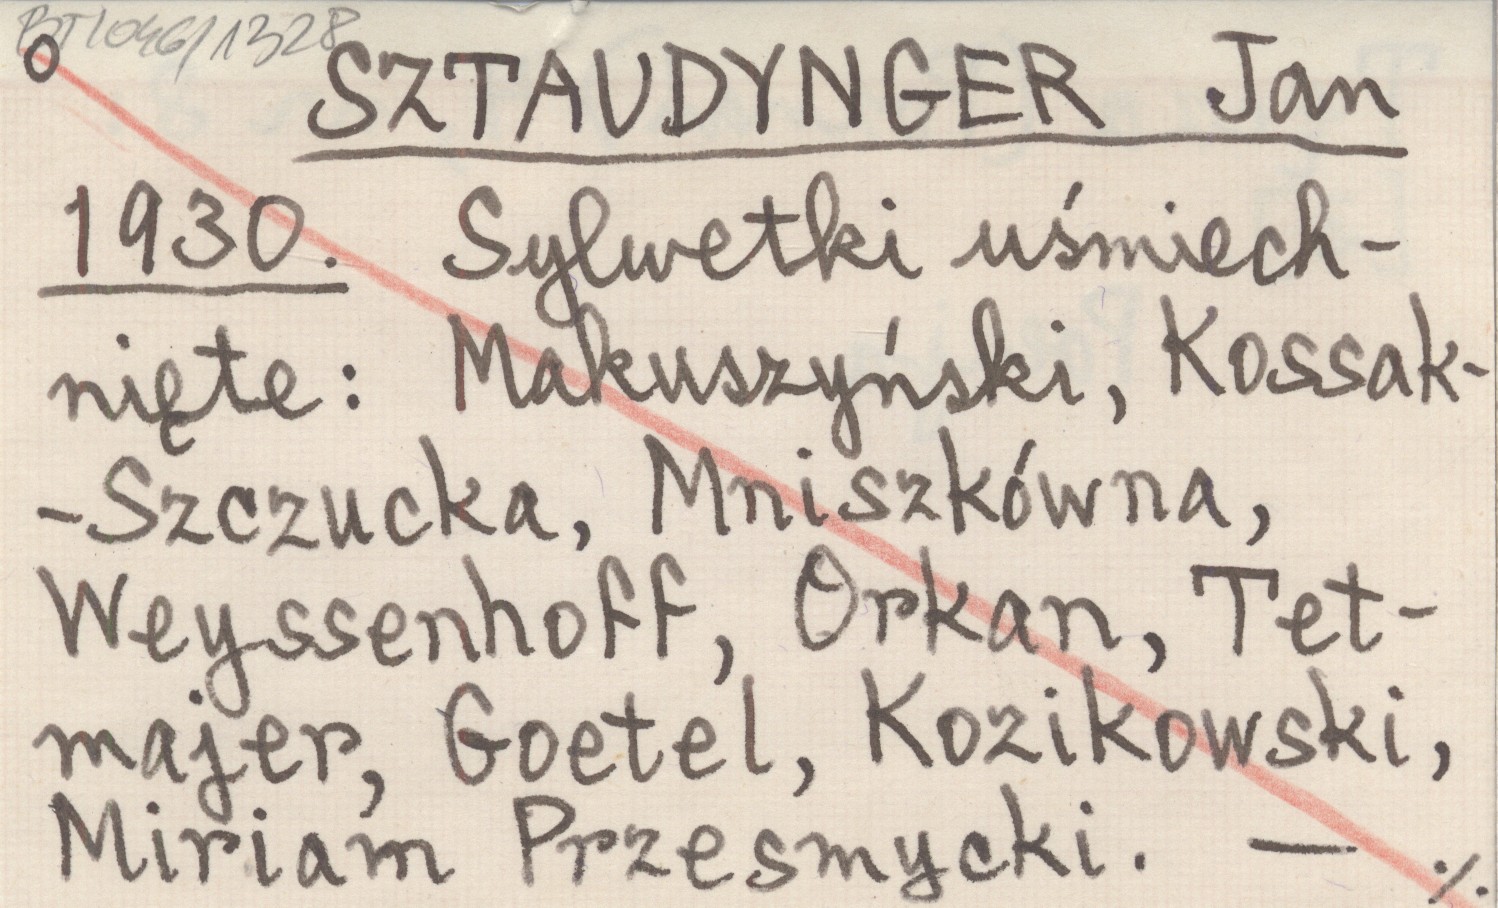 BT1046/1328
O SZTAUDYNGER Jan
1930. Sylwetki uśmiech-
nięte: Makuszyński, Kossak-
-Szczucka, Mniszkówna,
Weyssenhoff, Orkan, Tet-
majer, Goetel, Kozikowski,
Miriam Przesmycki. — ·/·